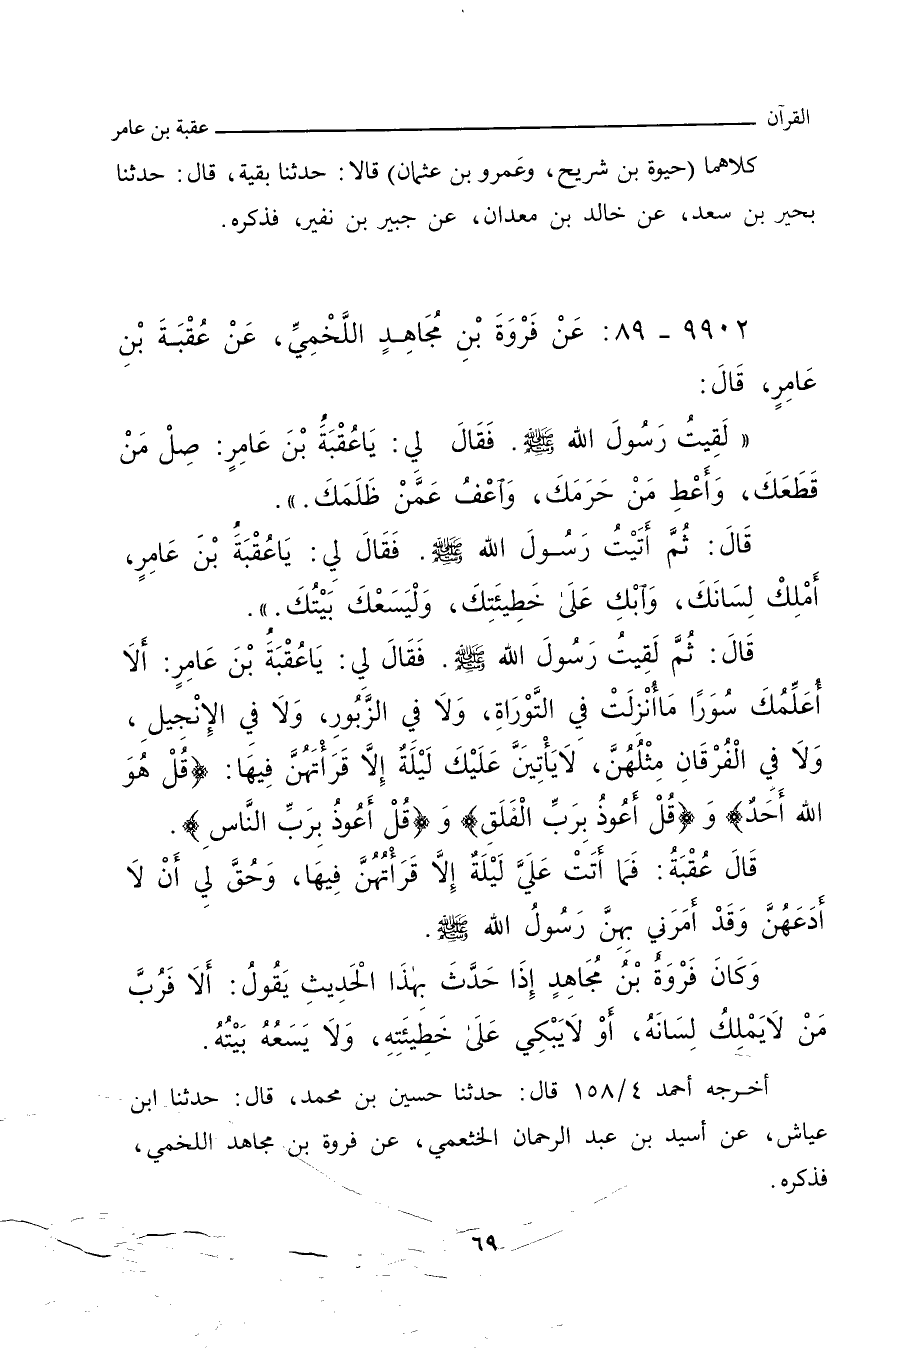 القرآن ـــــــــ عقبة بن عامر
كلاهما (حيوة بن شريح، وعَمرو بن عثمان) قالا: حدثنا بقية، قال: حدثنا
بحير بن سعد، عن خالد بن معدان، عن جبير بن نفير، فذكره.
٩٩٠٢ - ٨٩: عَنْ فَرْوَةَ بْنِ مُجَاهِدٍ اللَّخْمِيِّ، عَنْ عُقْبَةَ بْنِ
عَامِرٍ، قَالَ:
« لَقِيتُ رَسُولَ الله ﷺ. فَقَالَ لِي: يَاعُقْبَةُ بْنَ عَامِرٍ: صِلْ مَنْ
قَطَعَكَ، وَأَعْطِ مَنْ حَرَمَكَ، وَآعْفُ عَمَّنْ ظَلَمَكَ.».
قَالَ: ثُمَّ أَتَيْتُ رَسُولَ الله ﷺ. فَقَالَ لِي: يَاعُقْبَةُ بْنَ عَامِرٍ،
أَمْلِكْ لِسَانَكَ، وَآبْكِ عَلَىٰ خَطِيئَتِكَ، وَلْيَسَعْكَ بَيْتُكَ.».
قَالَ: ثُمَّ لَقِيتُ رَسُولَ الله ﷺ. فَقَالَ لِي: يَاعُقْبَةُ بْنَ عَامِرٍ: أَلَا
أُعَلِّمُكَ سُوَرًا مَاأُنْزِلَتْ فِي التَّوْرَاةِ، وَلَا فِي الزَّبُورِ، وَلَا فِي الإِنْجِيلِ،
وَلَا فِي الْفُرْقَانِ مِثْلُهُنَّ، لَايَأْتِيَنَّ عَلَيْكَ لَيْلَةٌ إِلَّا قَرَأْتَهُنَّ فِيهَا: ﴿قُلْ هُوَ
الله أَحَدٌ﴾ وَ ﴿قُلْ أَعُوذُ بِرَبِّ الْفَلَقِ﴾ وَ ﴿قُلْ أَعُوذُ بِرَبِّ النَّاسِ﴾.
قَالَ عُقْبَةُ: فَمَا أَتَتْ عَلَيَّ لَيْلَةٌ إِلَّا قَرَأْتُهُنَّ فِيهَا، وَحُقَّ لِي أَنْ لَا
أَدَعَهُنَّ وَقَدْ أَمَرَنِي بِهِنَّ رَسُولُ الله ﷺ.
وَكَانَ فَرْوَةُ بْنُ مُجَاهِدٍ إِذَا حَدَّثَ بِهٰذَا الْحَدِيثِ يَقُولُ: أَلَا فَرُبَّ
مَنْ لَايَمْلِكُ لِسَانَهُ، أَوْ لَايَبْكِي عَلَىٰ خَطِيئَتِهِ، وَلَا يَسَعُهُ بَيْتُهُ.
أخرجه أحمد ١٥٨/٤ قال: حدثنا حسين بن محمد، قال: حدثنا ابن
عياش، عن أسيد بن عبد الرحمان الخثعمي، عن فروة بن مجاهد اللخمي،
فذكره.
٦٩